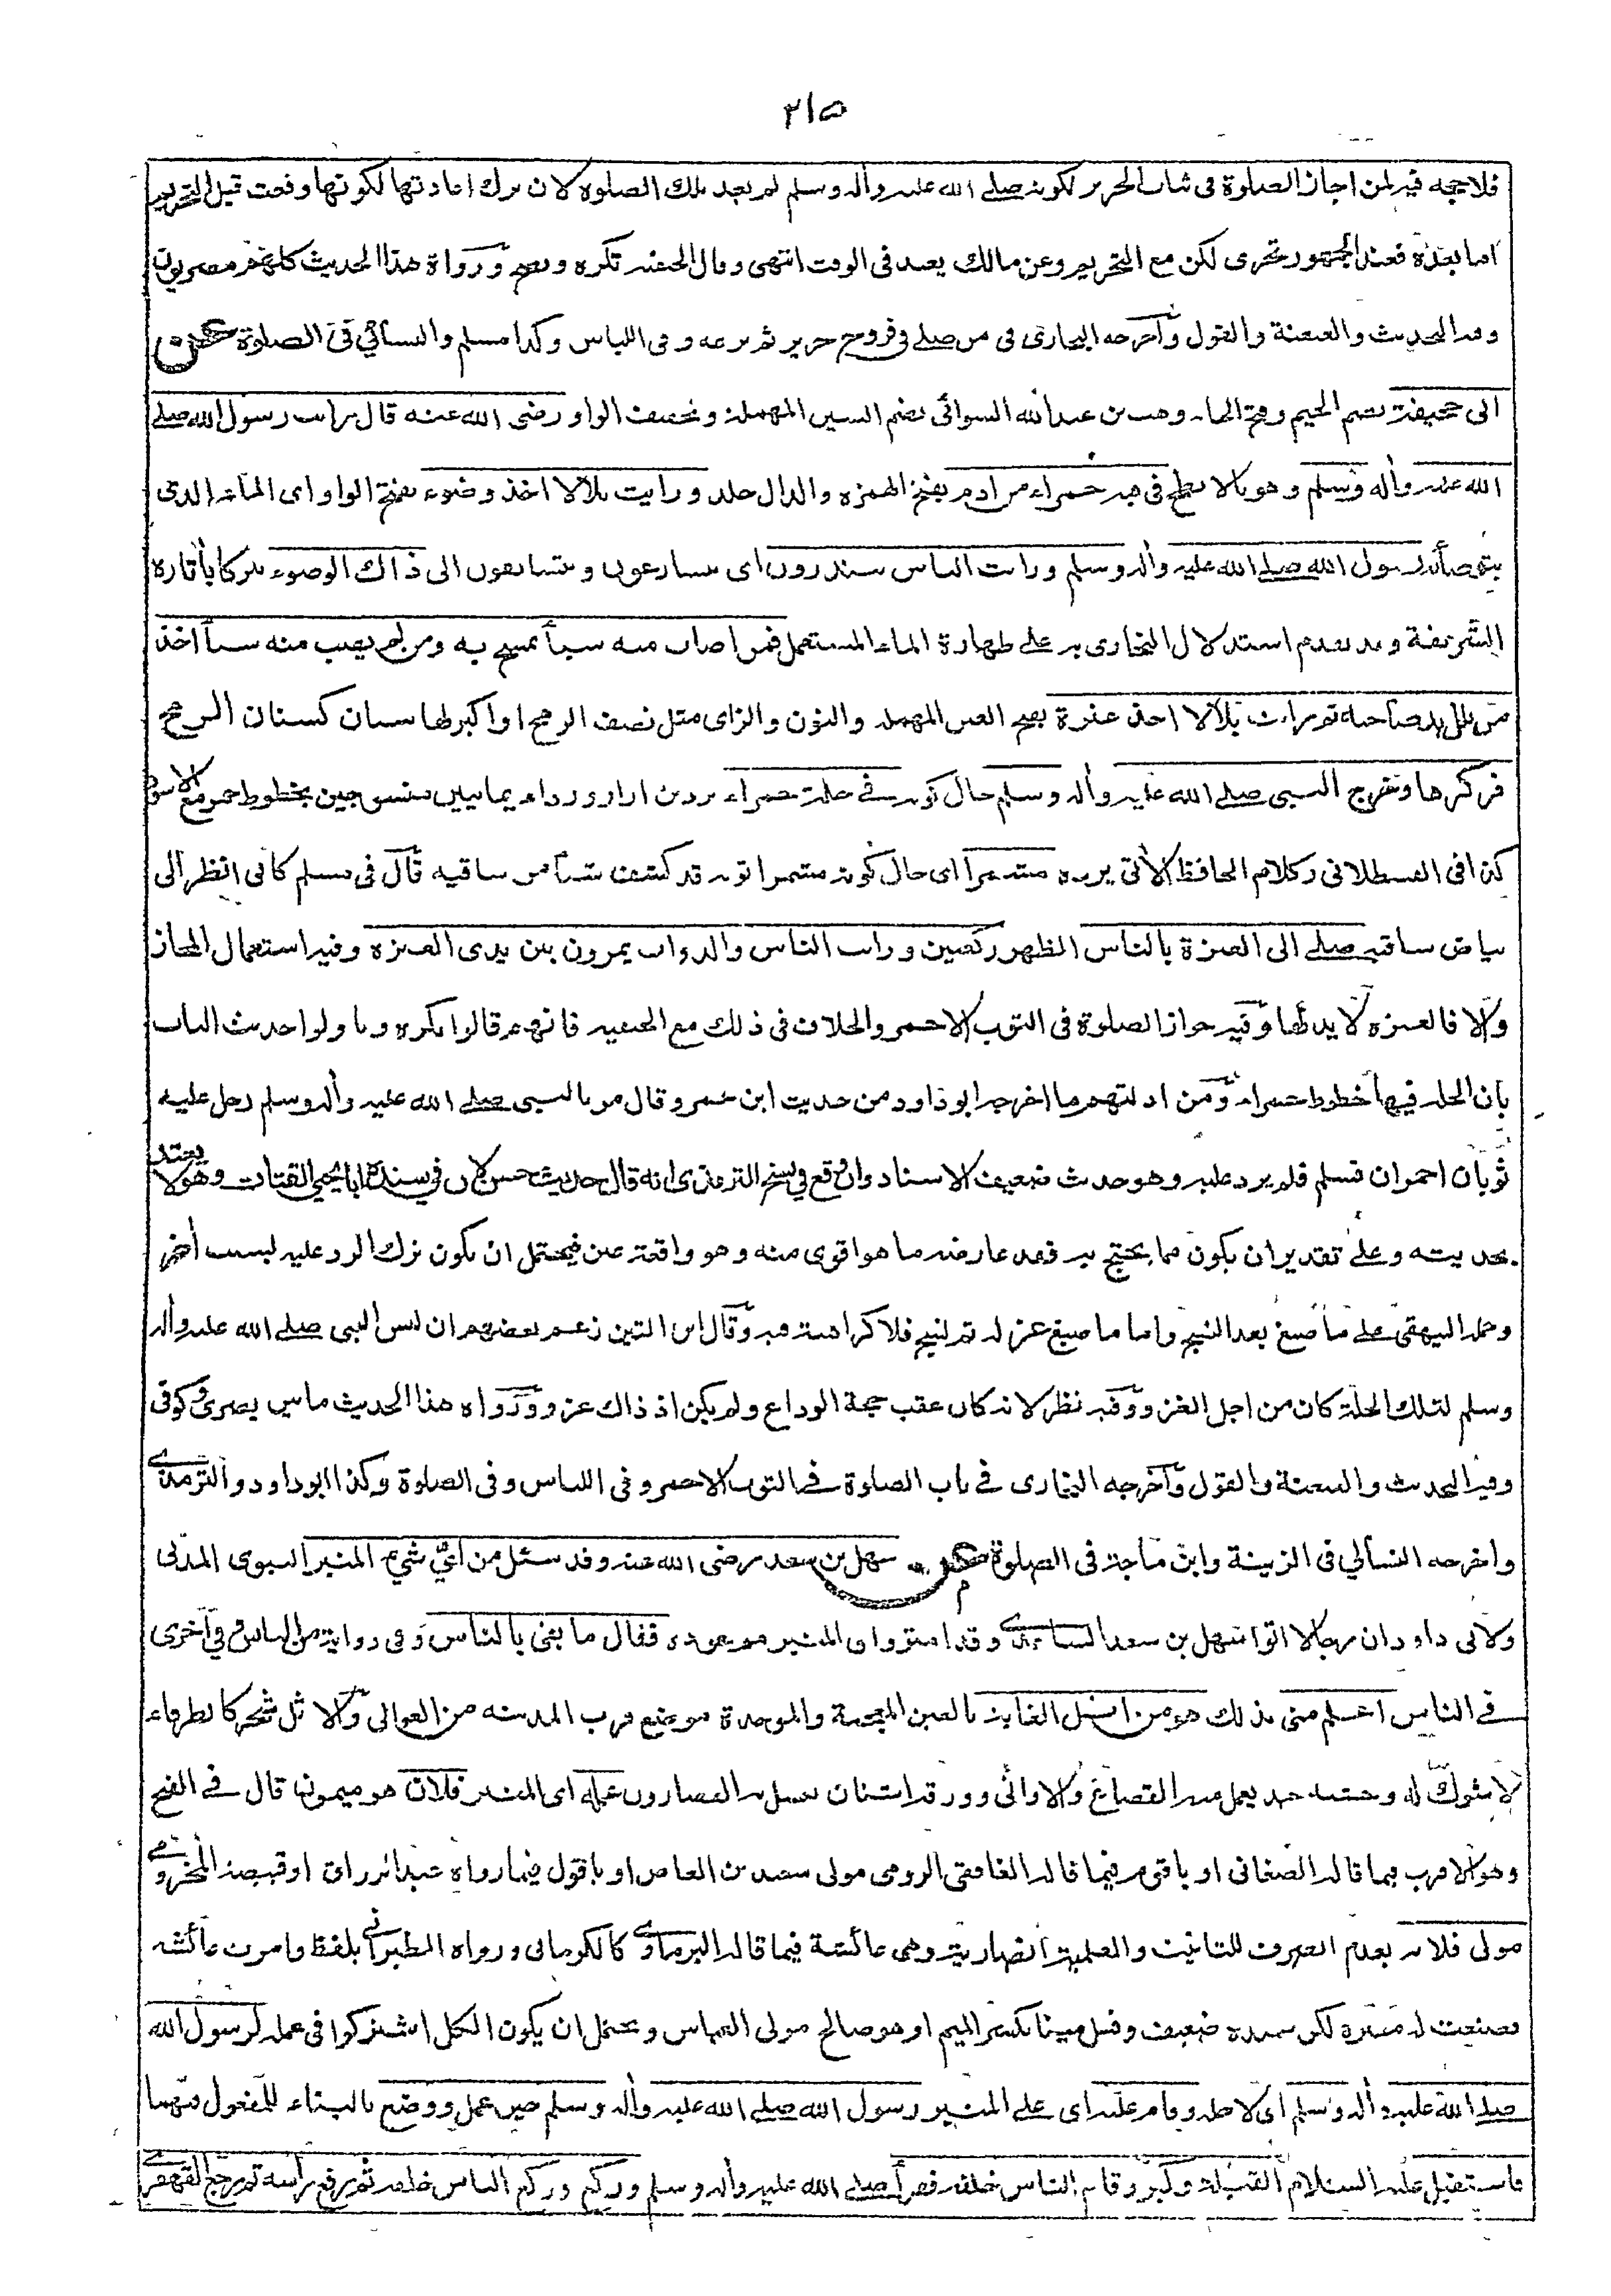 ٢١٥
فلا حجة فيه لمن اجاز الصلوة فى ثياب الحرير لكونه صلے الله عليه وأله وسلم لم يعد تلك الصلوة لان ترك اعادتها لكونها وقعت قبل التحريم
اما بعده فعند الجمهور تجزى لكن مع التحريم وعن مالك يعيد فى الوقت انتهى وقال الحنفية تكره وتصح ورواة هذا الحديث كلهم مصريون
وفيه التحديث والعنعنة والقول وأخرجه البخارى فى من صلے فى فروج حرير ثم نزعه وفى اللباس وكذا مسلم والنسائي فى الصلوة عن
ابى جحيفة بضم الجيم وفتح الحاء وهب بن عبد الله السوائى بضم السين المهملة وتخفيف الواو رضى الله عنه قال رايت رسول الله صلے
الله عليه وأله وسلم وهو بالابطح فى قبة حمراء من ادم بفتح الهمزة والدال جلد ورايت بلالا اخذ وضوء بفتح الواو اى الماء الذى
يتوضأ به رسول الله صلے الله عليه وأله وسلم ورايت الناس يبتدرون اى يسارعون ويتسابقون الى ذاك الوضوء تبركا بأثاره
الشريفة وقد تقدم استدلال البخارى به على طهارة الماء المستعمل فمن اصاب منه شيأ تمسح به ومن لم يصب منه شيأ اخذ
من بلل يد صاحبه ثم رايت بلالا اخذ عنزة بفتح العين المهملة والنون والزاى مثل نصف الرمح او اكبر لها سنان كسنان الرمح
فركزها وخرج النبى صلے الله عليه وأله وسلم حال كونه فے حلة حمراء بردين ازار ورداء يمانيين منسوجين بخطوط حمر مع الاسود
كذا فى القسطلانى وكلام الحافظ الأتى يرده مشمرا اى حال كونه مشمرا ثوبه قد كشف شيأ من ساقيه قال فى مسلم كانى انظر الى
بياض ساقيه صلے الى العنزة بالناس الظهر ركعتين ورايت الناس والدواب يمرون بين يدى العنزة وفيه استعمال المجاز
والا فالعنزة لا يد لها وفيه جواز الصلوة فى الثوب الاحمر والخلاف فى ذلك مع الحنفية فانهم قالوا يكره وتأولوا حديث الباب
بان الحلة فيها خطوط حمراء ومن ادلتهم ما اخرجه ابو داود من حديث ابن عمرو قال مر بالنبى صلے الله عليه وأله وسلم رجل عليه
ثوبان احمران فسلم فلم يرد عليه وهو حديث ضعيف الاسناد وان وقع فى نسخ الترمذى انه قال حديث حسن لان فى سنده ابا يحيى القتات وهو لا يعتد
بحديثه وعلى تقدير ان يكون مما يحتج به فقد عارضه ما هو اقوى منه وهو واقعة عين فيحتمل ان يكون ترك الرد عليه لسبب أخر
وحمله البيهقى على ما صبغ بعد النسج واما ما صبغ غزله ثم نسج فلا كراهة فيه وقال ابن التين زعم بعضهم ان لبس النبى صلے الله عليه وأله
وسلم لتلك الحلة كان من اجل الغزو وفيه نظر لانه كان عقب حجة الوداع ولم يكن اذ ذاك غزو ورواه هذا الحديث ما بين بصرى وكوفى
وفيه التحديث والعنعنة والقول وأخرجه البخارى فے باب الصلوة فے الثوب الاحمر وفى اللباس وفى الصلوة وكذا ابو داود والترمذى
واخرجه النسائي فى الزينة وابن ماجة فى الصلوة عن سهل بن سعد رضى الله عنه وقد سئل من اىّ شىء المنبر النبوى المدنى
ولابى داود ان رجالا اتوا سهل بن سعد الساعدى وقد امتروا فى المنبر مم عوده فقال ما بقى بالناس وفى رواية من الناس وفى أخرى
فے الناس اعلم منى بذلك هو من اثل الغابة بالغين المعجمة والموحدة موضع قرب المدينة من العوالى والاثل شجر كالطرفاء
لا شوك له وخشبه جيد يعمل منه القصاع والاوانى وورقه اشنان يغسل به القصارون عمله اى المنبر فلان هو ميمون قال فے الفتح
وهو الاقرب فيما قاله الصغانى او باقوم فيما قاله الغافقى الرومى مولى سعيد بن العاص او باقول فيما رواه عبد الرزاق او قبيصة المخزومى
مولى فلانة بعدم الصرف للتانيث والعلمية انصارية وهى عائشة فيما قاله البرماوى كالكرمانى ورواه الطبرانى بلفظ وامرت عائشة
فصنعت له منبره لكن سنده ضعيف وقيل مينا بكسر الميم او هو صالح مولى العباس ويحتمل ان يكون الكل اشتركوا فى عمله لرسول الله
صلے الله عليه وأله وسلم اى لاجله وقام عليه اى على المنبر رسول الله صلے الله عليه وأله وسلم حين عمل ووضع بالبناء للمفعول فيهما
فاستقبل عليه السلام القبلة وكبر وقام الناس خلفه فقرأ صلے الله عليه وأله وسلم وركع وركع الناس خلفه ثم رفع رأسه ثم رجع القهقرى